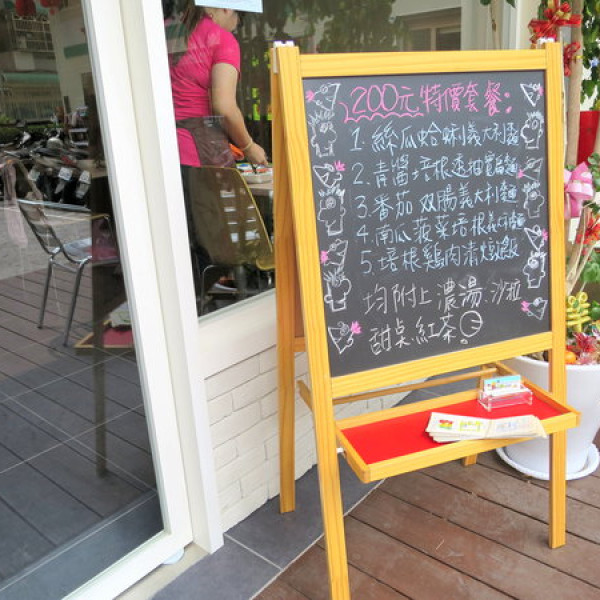 200元特價套餐:
1. 絲瓜蛤蜊義大利麵
2. 青醬培根
3. 番茄双腸義大利麵
4. 南瓜菠菜培根義
5. 培根雞肉清燉飯
均附上濃湯.沙拉
甜桌.紅茶